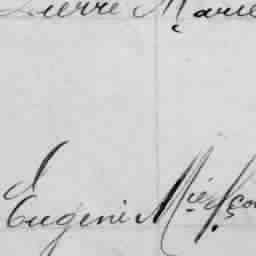 Pierre Marie
Eugenie M.ie Fçoi